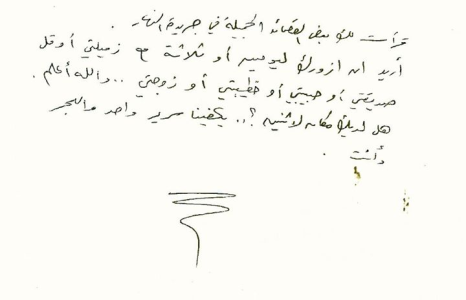 قرأت لك بعض القصائد الجميلة في جريدة النهار .
أريد ان ازورك ليومين أو ثلاثة مع زميلتي أو قل
صديقتي أو حبيبتي أو خطيبتي أو زوجتي .. والله أعلم .
هل لديك مكان لاثنين ؟.. يكفينا سرير واحد والبحر
وأنت .